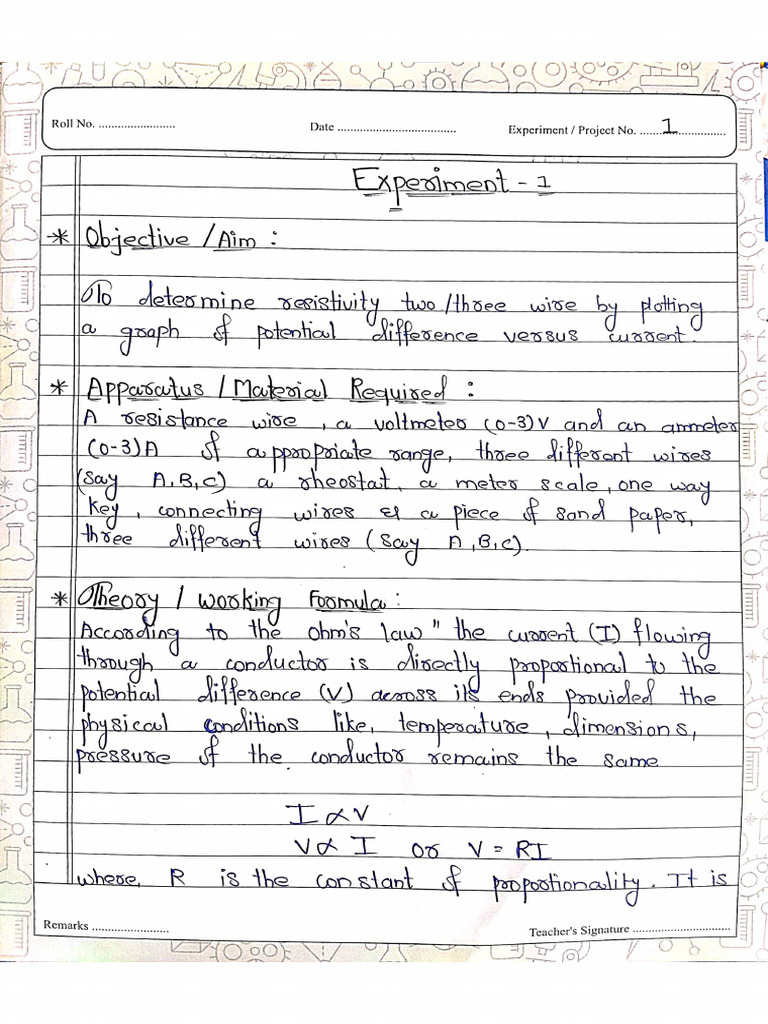 Roll No. ........................
Date ....................................
Experiment / Project No. ........1................
Experiment - 1
* Objective / Aim :
To determine resistivity two/three wire by plotting
a graph of potential difference versus current.
* Apparatus / Material Required :
A resistance wire, a voltmeter (0-3)V and an ammeter
(0-3)A of appropriate range, three different wires
(Say A,B,C) a rheostat, a meter scale, one way
key, connecting wires & a piece of sand paper,
three different wires (Say A,B,C).
* Theory / Working Formula :
According to the ohm's law " the current (I) flowing
through a conductor is directly proportional to the
potential difference (V) across its ends provided the
physical conditions like, temperature, dimensions,
pressure of the conductor remains the same
I ∝ V
V ∝ I or V = RI
where, R is the constant of proportionality. It is
Remarks ........................
Teacher's Signature ..............................